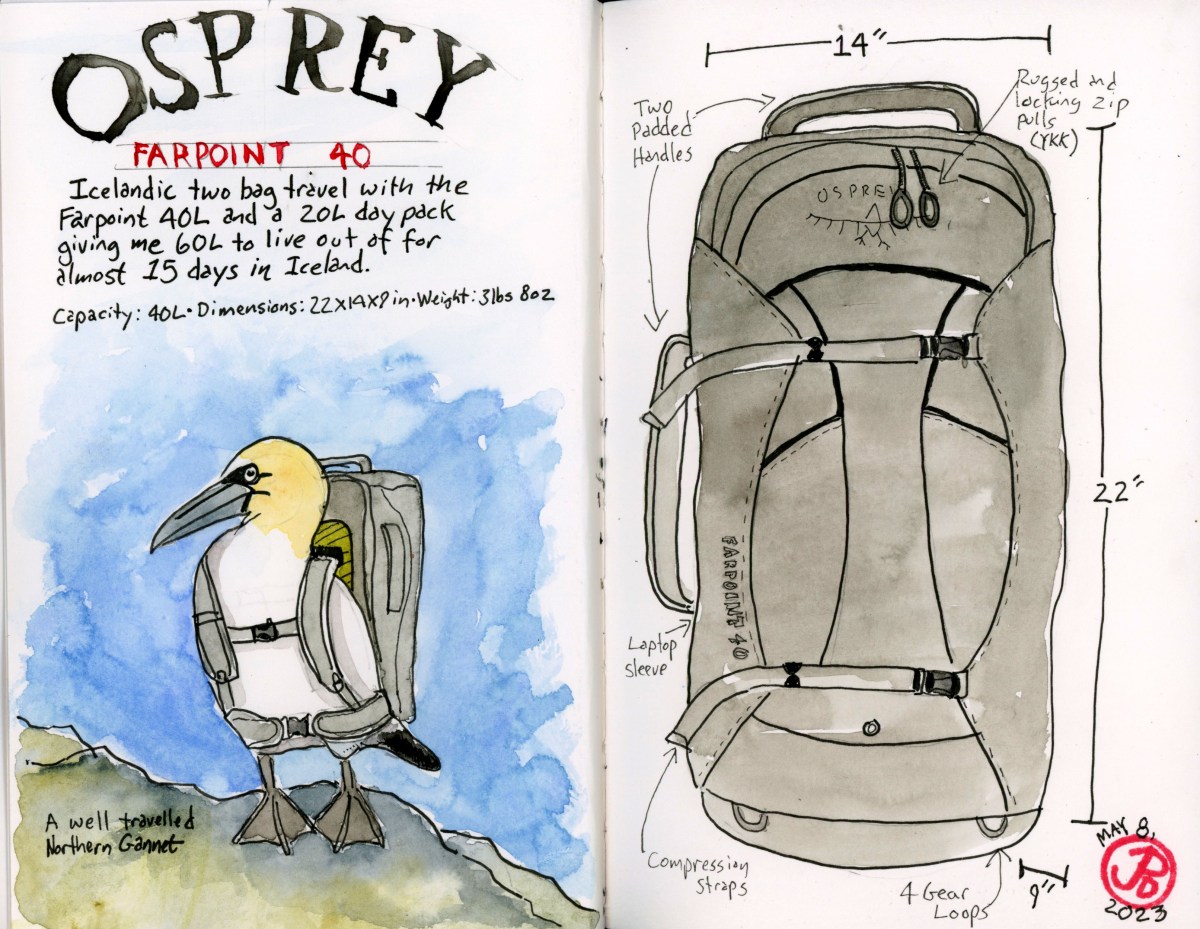 OSPREY
FARPOINT 40
Icelandic two bag travel with the
Farpoint 40L and a 20L day pack
giving me 60L to live out of for
almost 15 days in Iceland.
Capacity: 40L · Dimensions: 22x14x9 in · Weight: 3lbs 8oz
A well travelled
Northern Gannet
14"
Two
Padded
Handles
Rugged and
locking zip
pulls
(YKK)
OSPREY
22"
FARPOINT 40
Laptop
sleeve
Compression
Straps
4 Gear
Loops
9"
MAY 8,
JPD
2023